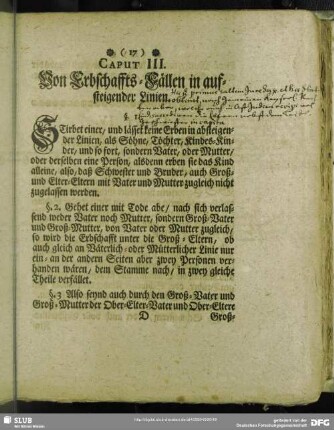 ( 17 )
CAPUT III.
Von Erbschaffts-Fällen in auf-
steigender Linien.
§. 1.
Stirbet einer, und lässet keine Erben in absteigen-
der Linien, als Söhne, Töchter, Kindes-Kin-
der, und so fort, sondern Vater, oder Mutter,
oder derselben eine Person, alsdenn erben sie das Kind
alleine, also, daß Schwester und Bruder, auch Groß-
und Elter-Eltern mit Vater und Mutter zugleich nicht
zugelassen werden.
§. 2. Gehet einer mit Tode abe, nach sich verlas-
send weder Vater noch Mutter, sondern Groß-Vater
und Groß-Mutter, von Vater oder Mutter zugleich,
so wird die Erbschafft unter die Groß-Eltern, ob
auch gleich an Väterlich- oder Mütterlicher Linie nur
ein- an der andern Seiten aber zwey Personen ver-
handen wären, dem Stamme nach, in zwey gleiche
Theile verfället.
§. 3 Also seynd auch durch den Groß-Vater und
Groß-Mutter der Ober-Elter-Vater und Ober-Eltere
D Groß-
SLUB
Wir führen Wissen.
gefördert von der
Deutschen Forschungsgemeinschaft
DFG